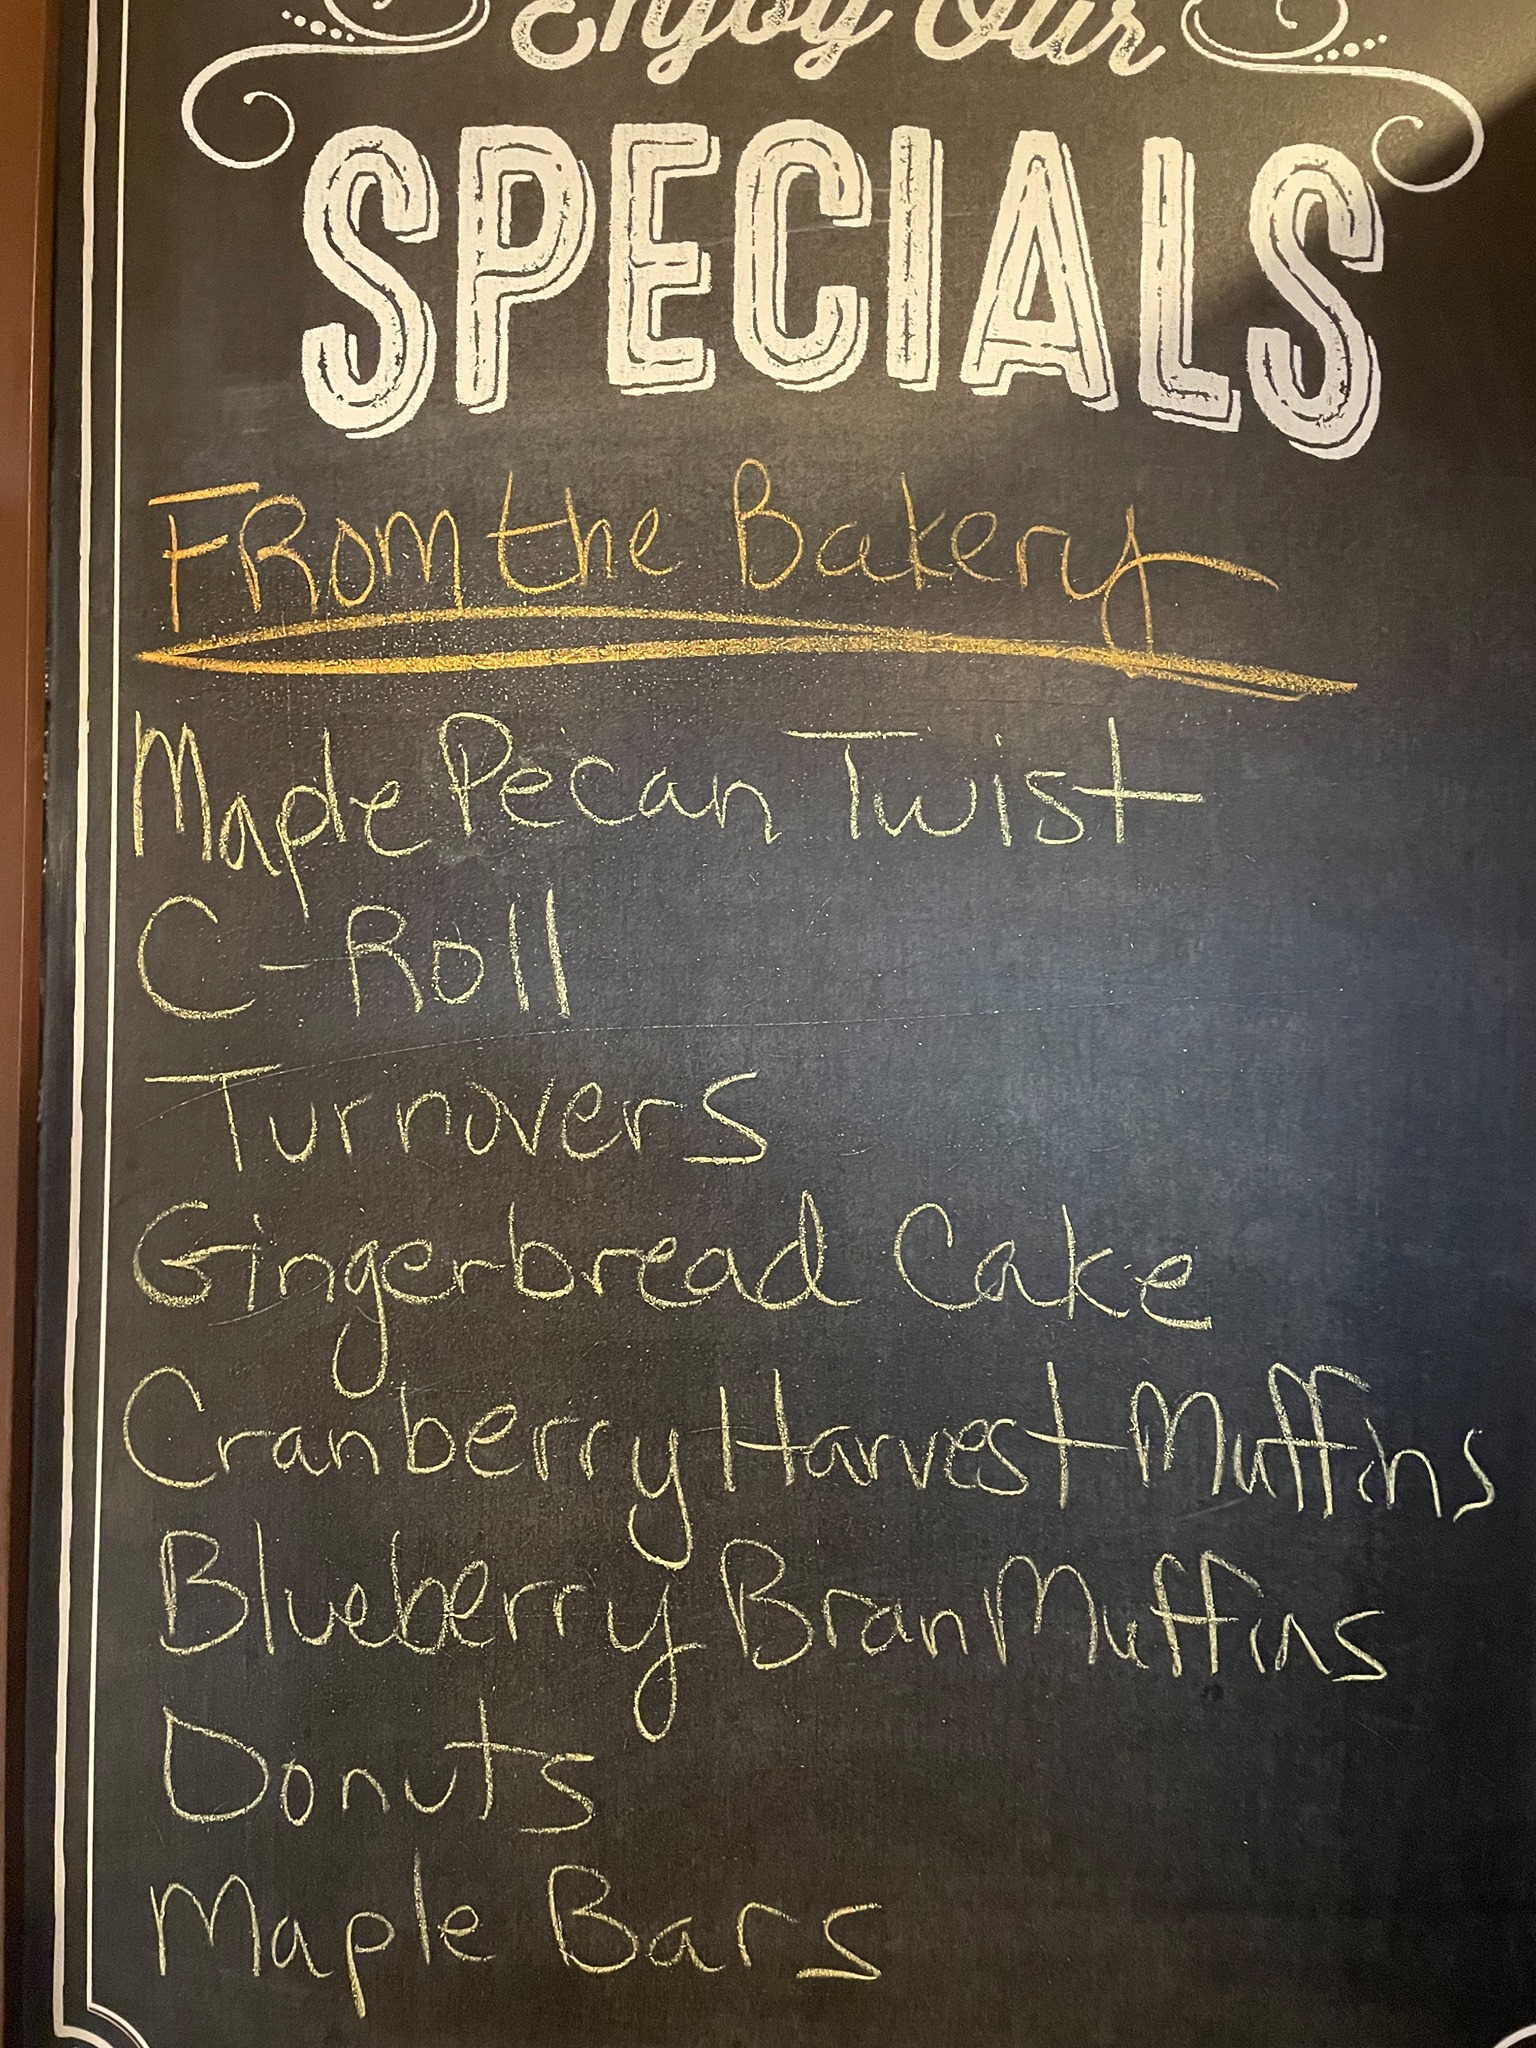 Enjoy Our
SPECIALS
FRom the Bakery
Maple Pecan Twist
C-Roll
Turnovers
Gingerbread Cake
Cranberry Harvest Muffins
Blueberry Bran Muffins
Donuts
Maple Bars